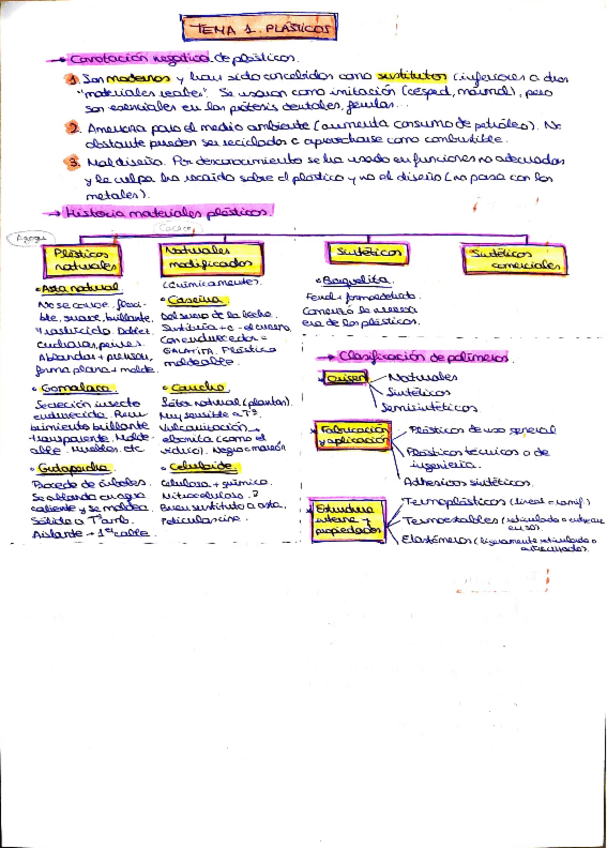 TEMA 1. PLÁSTICOS
→ Connotación negativa de plásticos.
1. Son modernos y han sido concebidos como sustitutos (inferiores a otros
"materiales reales". Se usaron como imitación (césped, mármol), pero
son esenciales en las prótesis dentales, férulas...
2. Amenaza para el medio ambiente (aumenta consumo de petróleo). No
obstante pueden ser reciclados o aprovecharse como combustible.
3. Mal diseño. Por desconocimiento se ha usado en funciones no adecuadas
y la culpa ha recaído sobre el plástico y no el diseño (no pasa con los
metales).
→ Historia materiales plásticos.
Plásticos
naturales
• Asta natural
No se corroe. flexi-
ble, suave, brillante,
y
cucharas, peines.
Ablandar + prensar,
forma plana + molde.
• Gomalaca
Secreción insecto
endurecida. Recu
brimiento brillante
transparente. Molde-
able. Muebles, etc
• Gutapercha
Procede de árboles.
Se ablanda en agua
caliente y se moldea.
Sólida a Tª amb.
Aislante → 1er cable.
Naturales
modificados
(químicamente).
• Caseína
Del suero de la leche.
Sustituía + o - el cuerno.
Con endurecedor =
GALATITA. Plástico
moldeable.
• Caucho
Látex natural (plantas).
Muy sensible a Tª.
Vulcanización →
ebonita (como el
vidrio). Negro o marrón
• Celuloide
Celulosa + químico.
Nitrocelulosa.
Buen sustituto a asta.
Películas cine.
Sintéticos
• Baquelita.
Fenol + formaldehido.
Comenzó la
era de los plásticos.
Sintéticos
comerciales
→ Clasificación de polímeros.
Origen
Naturales
Sintéticos
Semisintéticos
Fabricación
y aplicación
Plásticos de uso general
Plásticos técnicos o de
ingeniería.
Adhesivos sintéticos.
Estructura
interna y
propiedades
Termoplásticos (lineal o ramif.)
Termoestables (reticulado o entrecruz
en 3D).
Elastómeros (ligeramente reticulado o
entrecruzado).